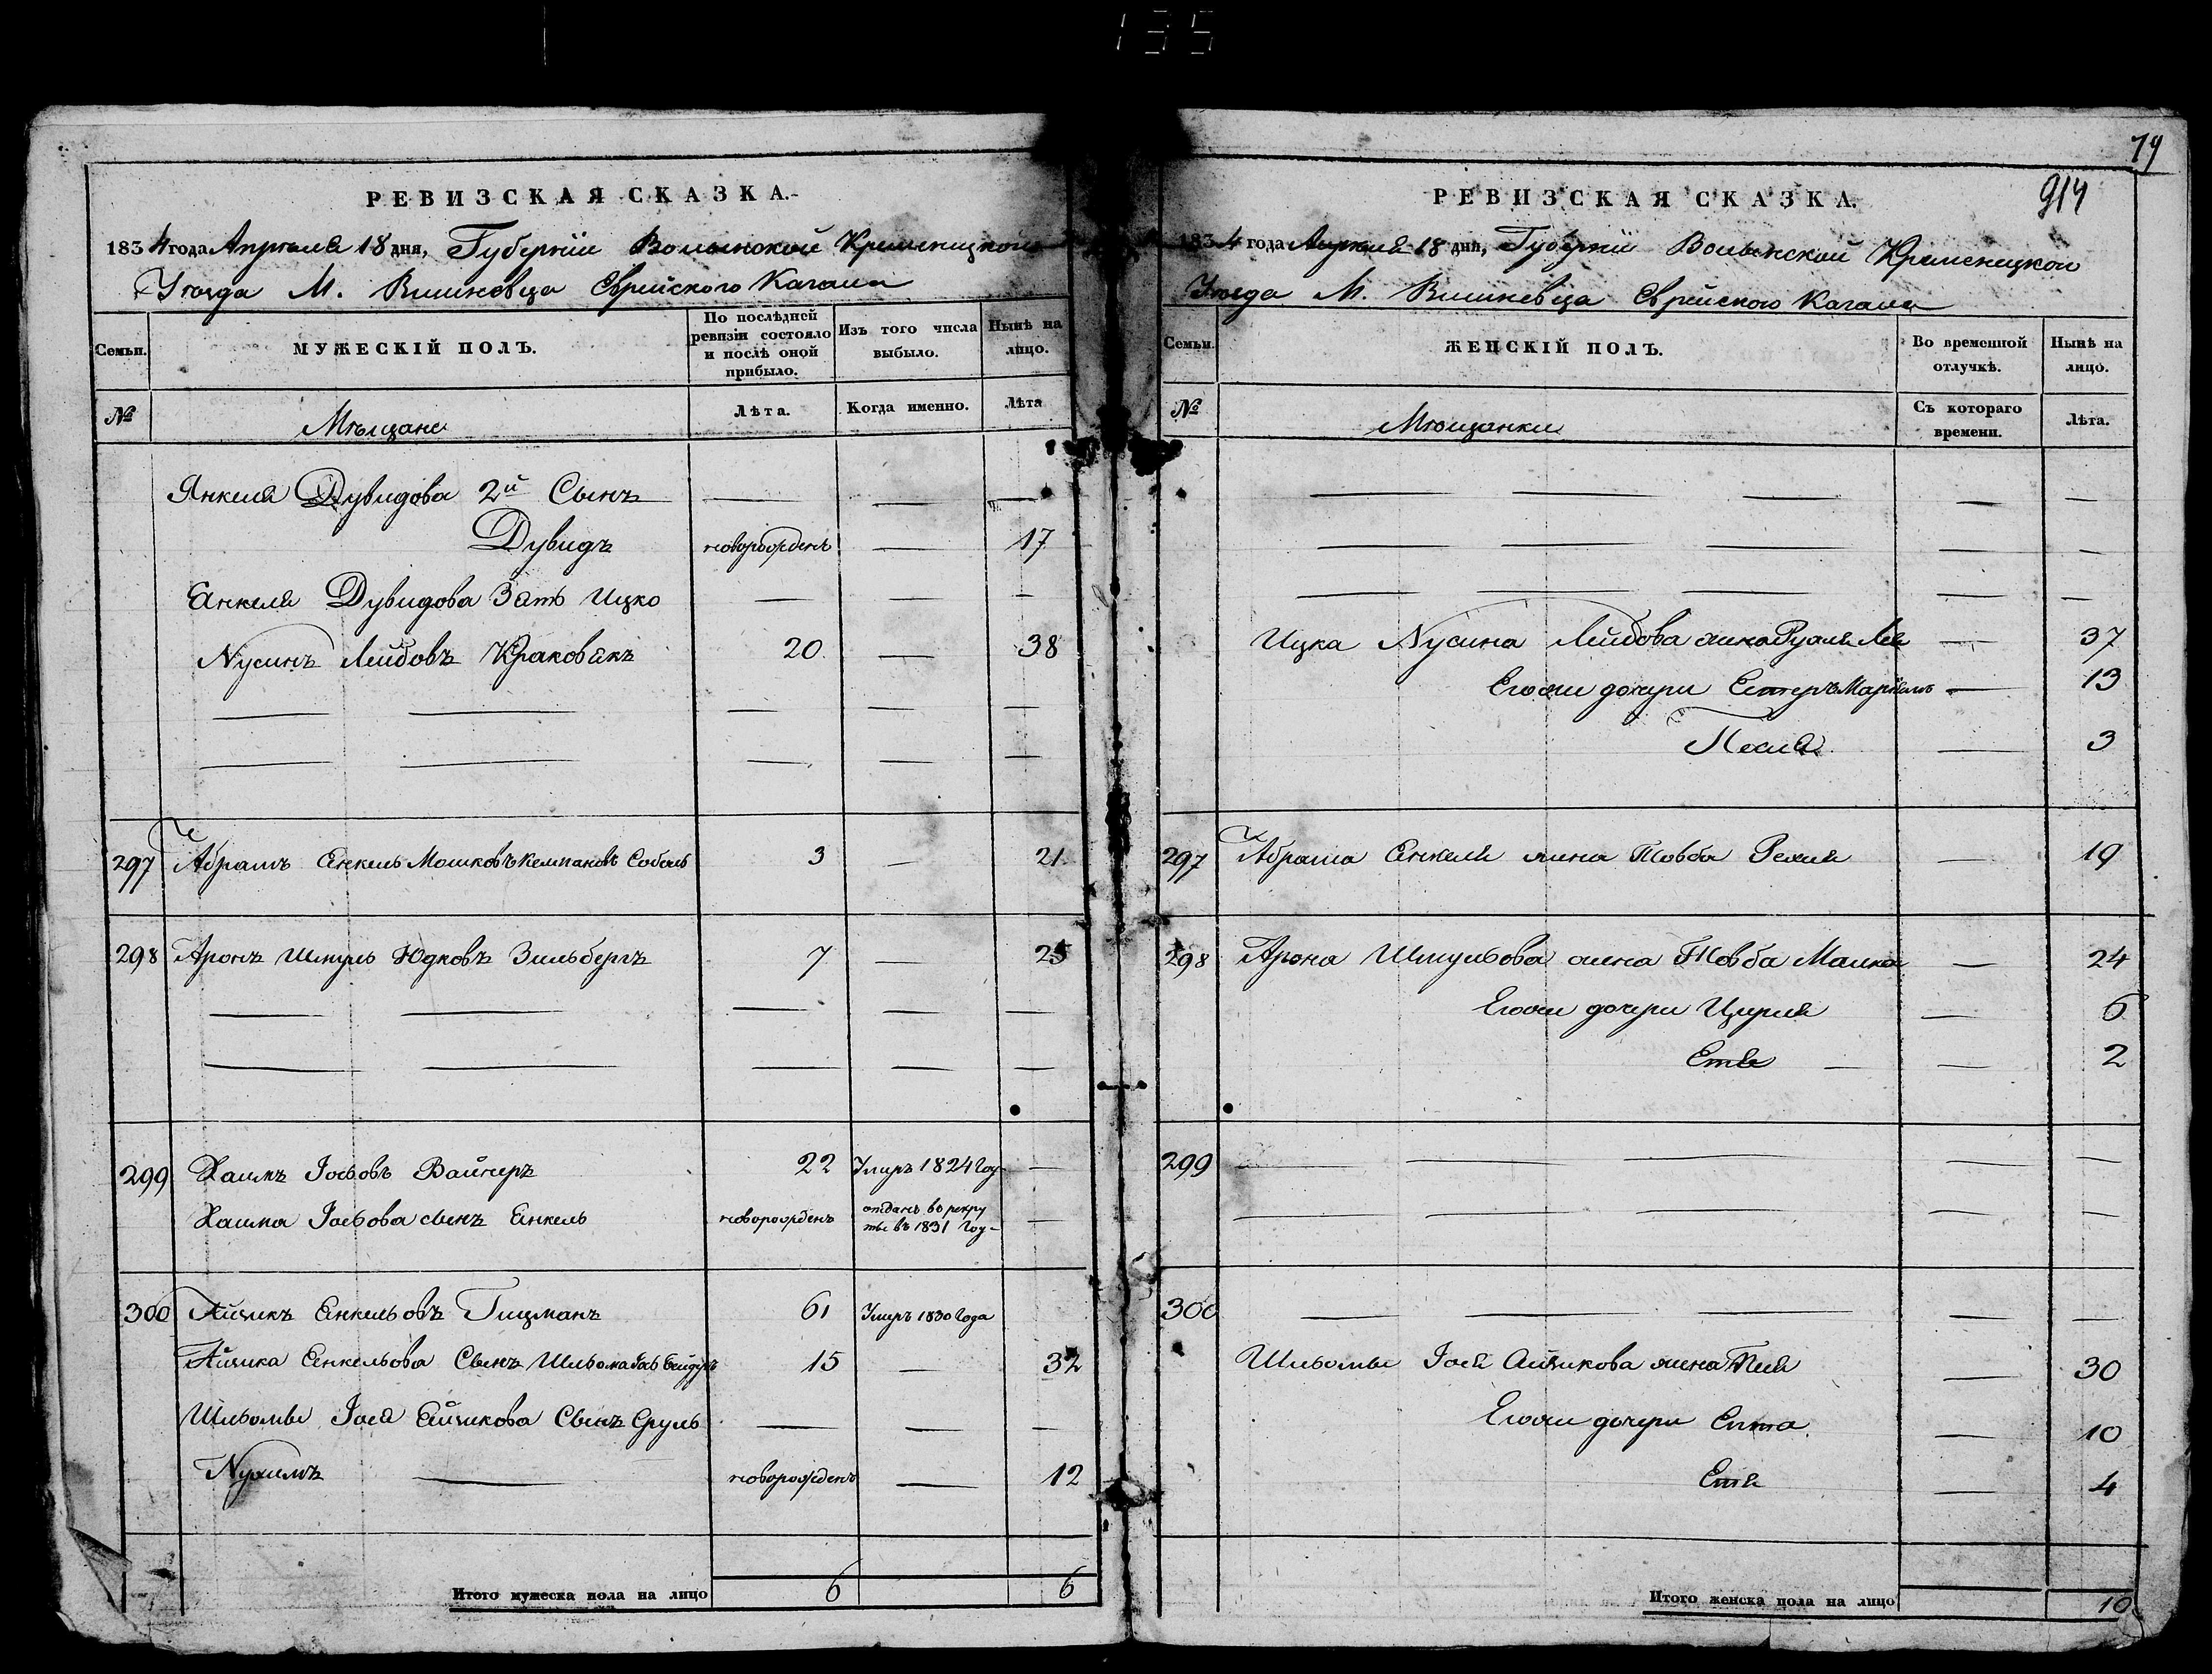 135
79
914
РЕВИЗСКАЯ СКАЗКА.
1834 года Апрѣля 18 дня, Губерніи Волынской Кременецкого
Уѣзда М. Вишневца Еврейского Кагала
Семьи.
МУЖЕСКІЙ ПОЛЪ.
По послѣдней ревизіи состояло и послѣ оной прибыло.
Изъ того числа выбыло.
Нынѣ на лицо.
№
Мѣщане
Лѣта.
Когда именно.
Лѣта
Янкеля Дувидова 2й Сынъ — — —
Дувидъ новорожденъ — 17
Енкеля Дувидова Зать Ицко — — —
Нусинъ Лейбовъ Краковякъ 20 — 38
297 Абрамъ Енкель Мошковъ Соболь 3 — 21
298 Аронъ Шмуль Юдковъ Зильбергъ 7 — 25
299 Хаимъ Іосьовъ Вайнеръ 22 Умръ 1824 Году —
Хаима Іосьова сынъ Енкель новорожденъ отданъ въ рекруты въ 1831 Году —
300 Айзикъ Енкельовъ Гицманъ 61 Умръ 1830 Года
Айзика Енкельова Сынъ Шльома 15 — 32
Шльомы Іося Айзикова Сынъ Сруль — — —
Нухимъ — новорожденъ — 12
Итого мужеска пола на лицо 6 6
РЕВИЗСКАЯ СКАЗКА.
1834 года Апрѣля 18 дня, Губерніи Волынской Кременецкой
Уѣзда М. Вишневца Еврейского Кагала
Семьи.
ЖЕНСКІЙ ПОЛЪ.
Во временной отлучкѣ.
Нынѣ на лицо.
№
Мѣщанки
Съ котораго времени.
Лѣта.
Ицка Нусина Лейбова жена Рухля Лея — 37
Егожъ дочери Естеръ Маріямъ — 13
Песия — 3
297 Абрама Енкеля жена Товба Рехля — 19
298 Арона Шмульова жена Товба Малка — 24
Егожъ дочери Цирля — 6
Етя — 2
299 — — — — —
300 — — — — —
Шльомы Іося Айзикова жена — 30
Егожъ дочери — 10
Етя — 4
Итого женска пола на лицо 10